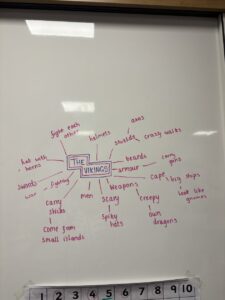 axes
fight each
other
helmets
shields
crazy walks
hat with
horns
THE
VIKINGS
beards
carry
guns
armour
swords
fighting
cape
big ships
war
men
weapons
look like
gnomes
carry
sticks
scary
creepy
come from
small islands
spiky
hats
own
dragons
1 2 3 4 5 6 7 8 9 10